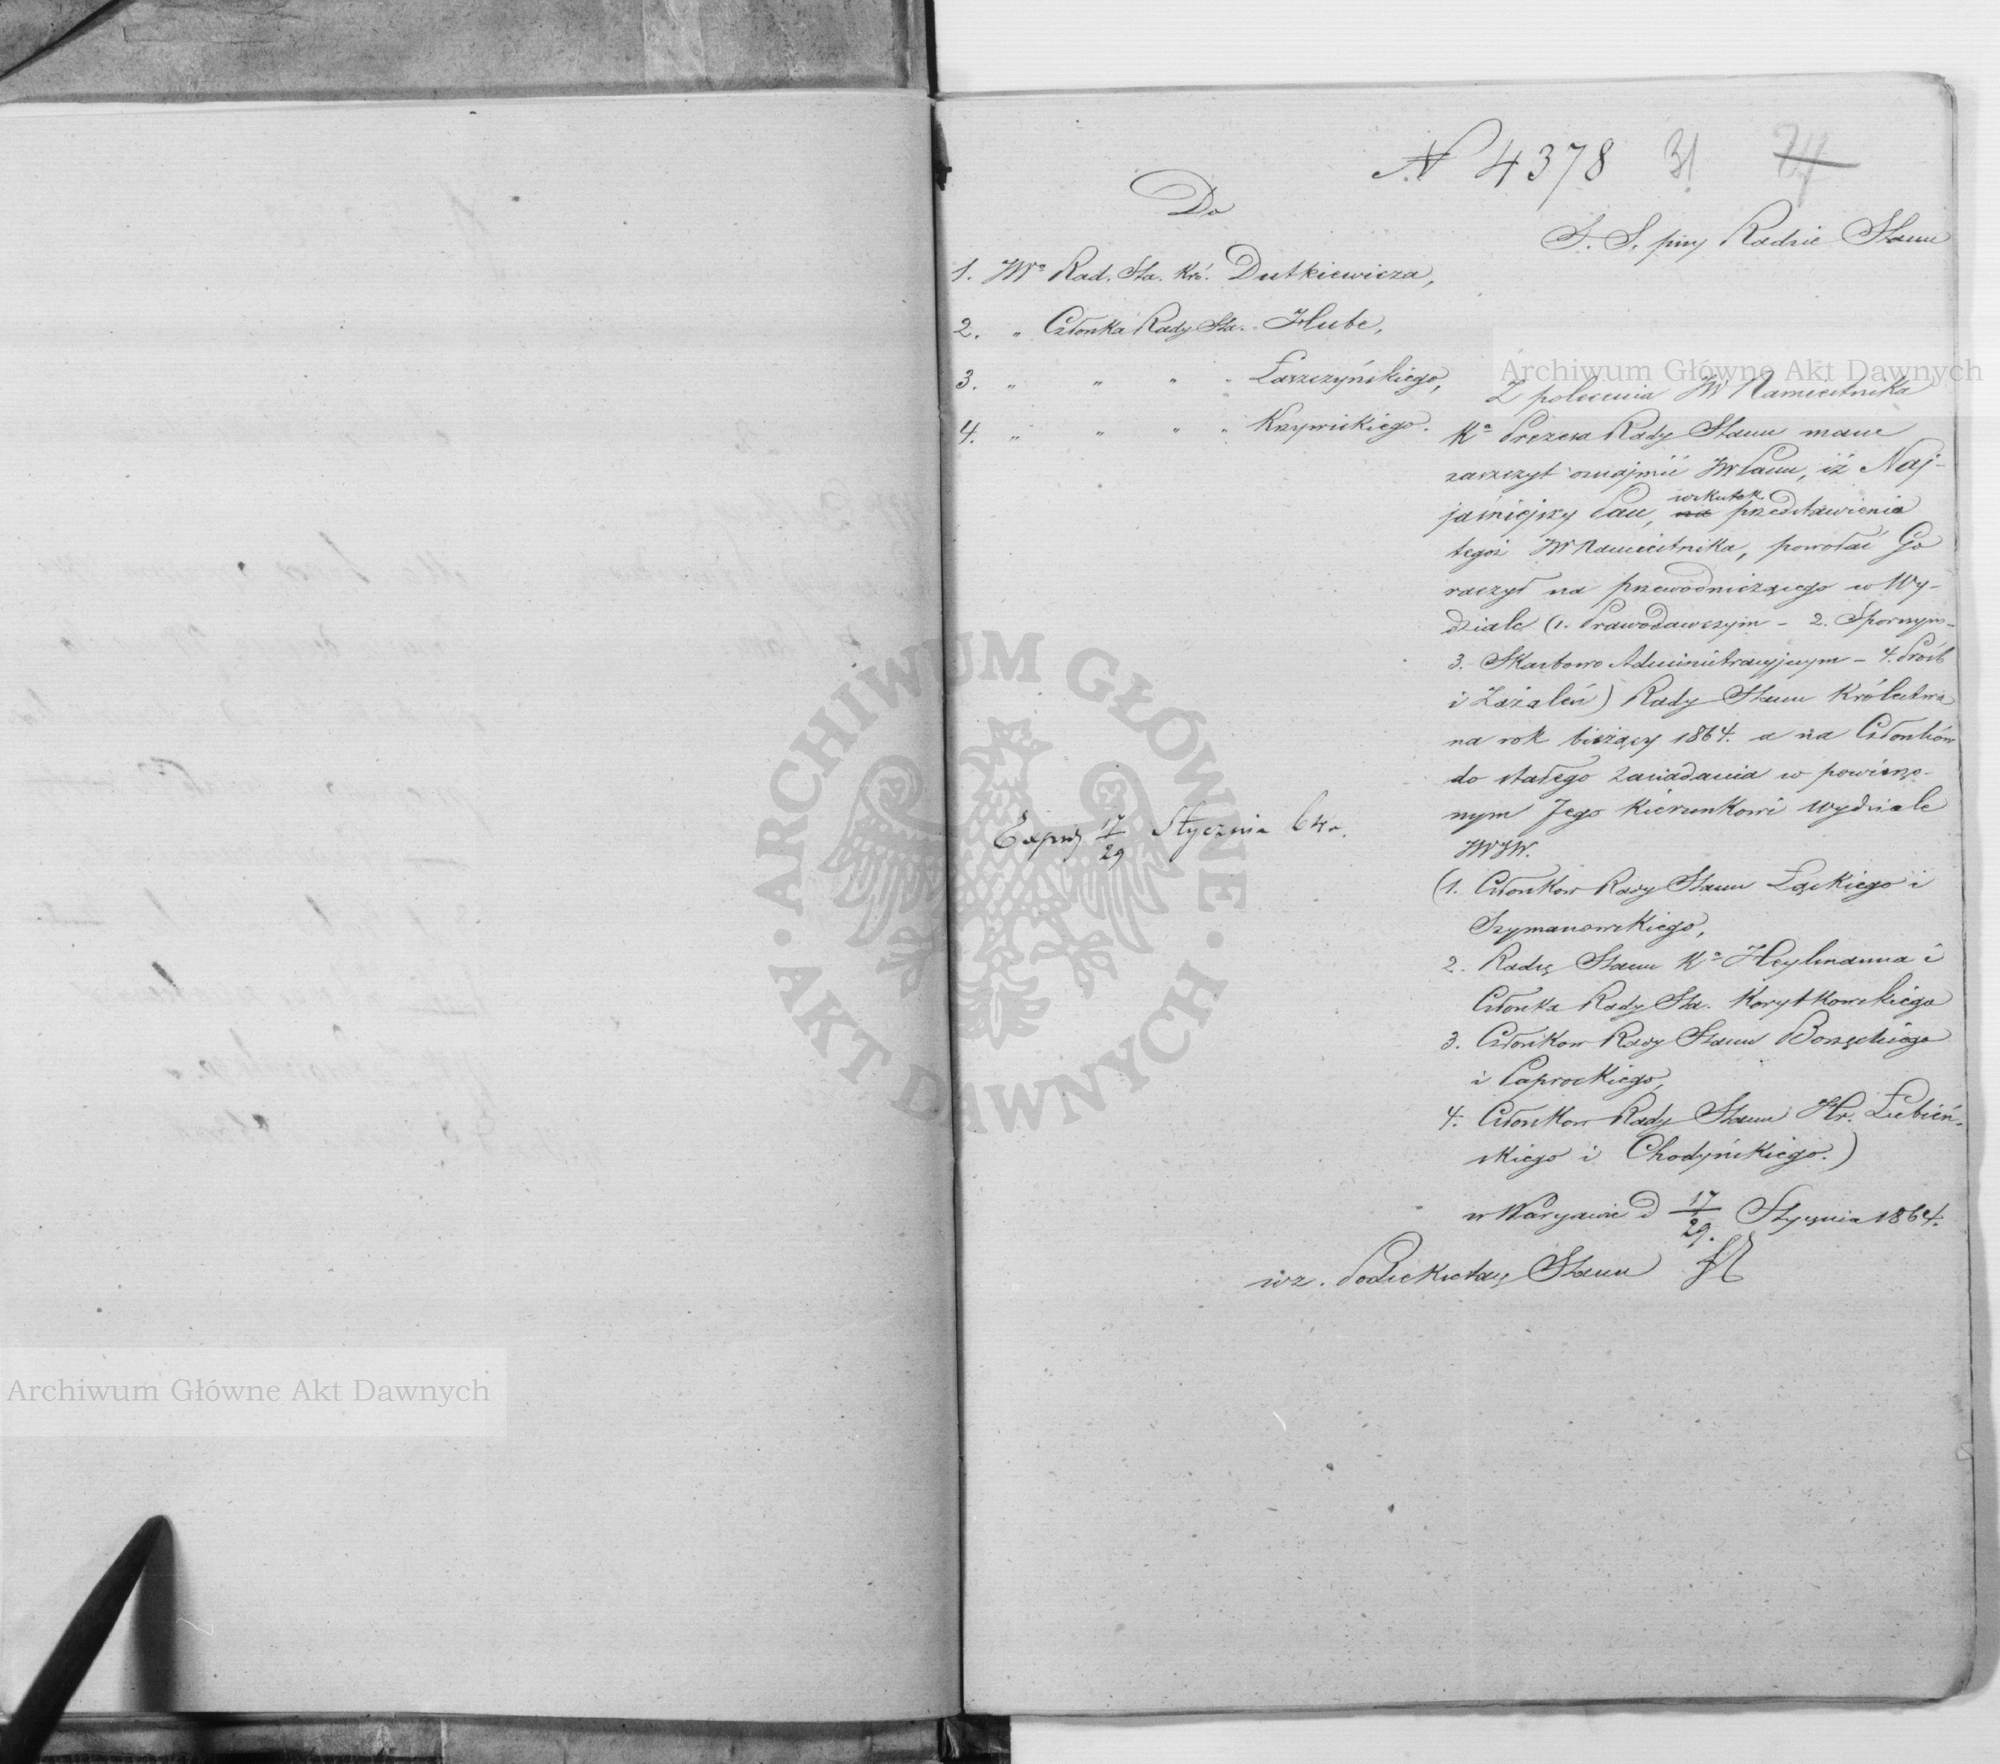 N 4378 31
Do
S. S. przy Radzie Stanu
1. JWo Rad. Sta. Kró. Dutkiewicza,
2. " Członka Rady Sta. Hube,
3. " " " " Łaszczyńskiego,
4. " " " " Krzywickiego.
Z polecenia JW Namiestnika
Ka Prezesa Rady Stanu mam
zaszczyt oznajmić JWPanu, iż Naj-
jaśniejszy Pan, na wskutek przedstawienia
tegoż JW Namiestnika, powołać Go
raczył na przewodniczącego w Wy-
dziale (1. Prawodawczym - 2. Spornym -
3. Skarbowo Administracyjnym - 4. Próśb
i Zażaleń) Rady Stanu Królestwa
na rok bieżący 1864. a na Członków
do stałego zasiadania w powierzo-
nym Jego kierunkowi wydziale
JWJW.
(1. Członków Rady Stanu Łąckiego i
Szymanowskiego,
2. Radcę Stanu Ka Heylmanna i
Członka Rady Sta. Korytkowskiego
3. Członków Rady Stanu Borzęckiego
i Paprockiego,
4. Członków Rady Stanu Hr. Łubień-
skiego i Chodyńskiego.)
w Warszawie d 17/29. Stycznia 1864.
wz. Podsekretarz Stanu
Exped 17/29 Stycznia 64 r.
Archiwum Główne Akt Dawnych
Archiwum Główne Akt Dawnych
ARCHIWUM GŁÓWNE · AKT DAWNYCH ·